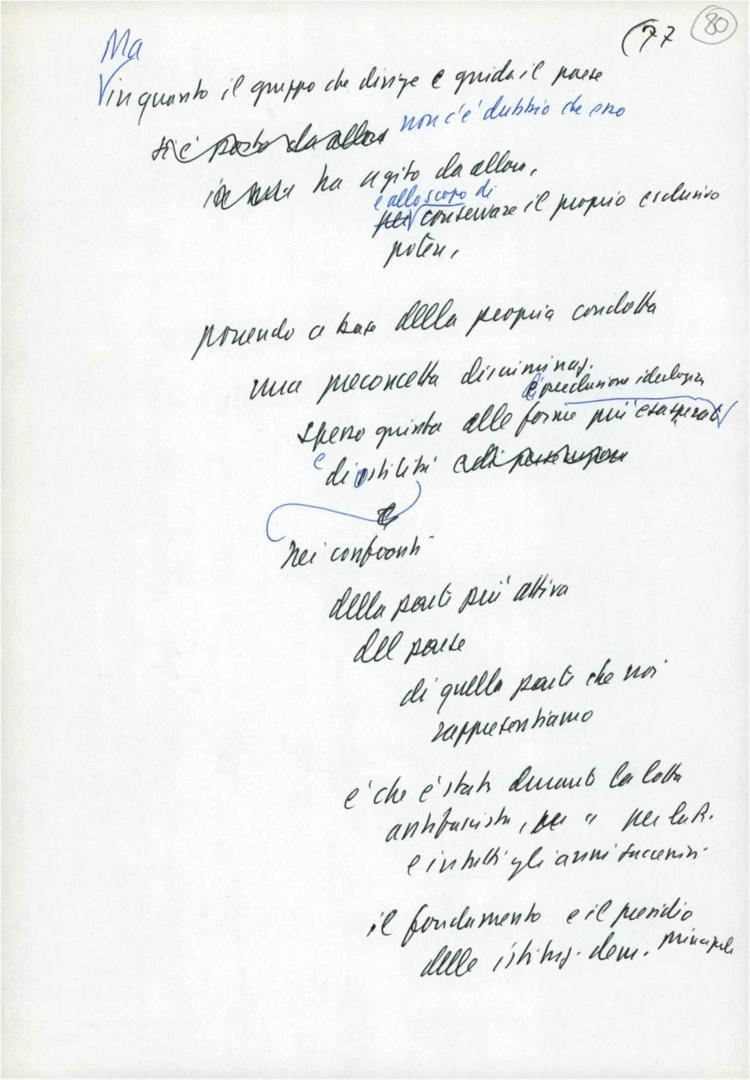 (77 80
Ma
in quanto il gruppo che dirige e guida il paese
non c'è dubbio che esso
si è posto da allora
ha agito da allora,
e allo scopo di
per conservare il proprio esclusivo
potere,
ponendo a base della propria condotta
una preconcetta discriminaz.
e preclusione ideologica
spesso giunta alle forme più esasperate
e di ostilità
nei confronti
della parte più attiva
del paese
di quella parte che noi
rappresentiamo
e che è stata durante la lotta
antifascista, per " per la R.
e in tutti gli anni successivi
il fondamento e il presidio
principale
delle istituz. dem.
FONDAZIONE